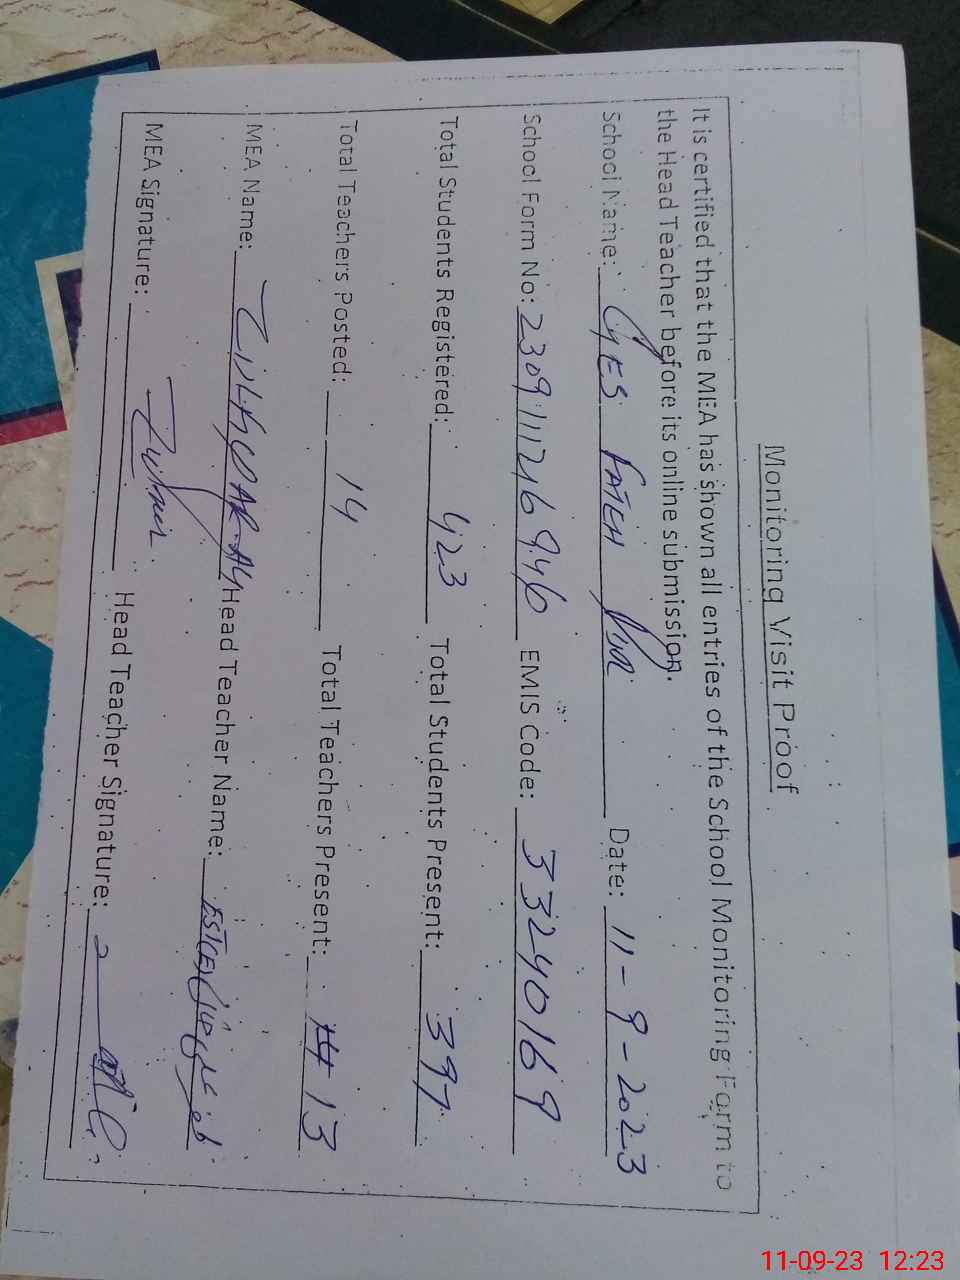 Monitoring Visit Proof
It is certified that the MEA has shown all entries of the School Monitoring Form to
the Head Teacher before its online submission.
School Name: GES FATEH Date: 11-9-2023
School Form No: 2309111216946 EMIS Code: 33240169
Total Students Registered: 423 Total Students Present: 397
Total Teachers Posted: 14 Total Teachers Present: 13
MEA Name: Head Teacher Name:
MEA Signature: Head Teacher Signature:
11-09-23 12:23